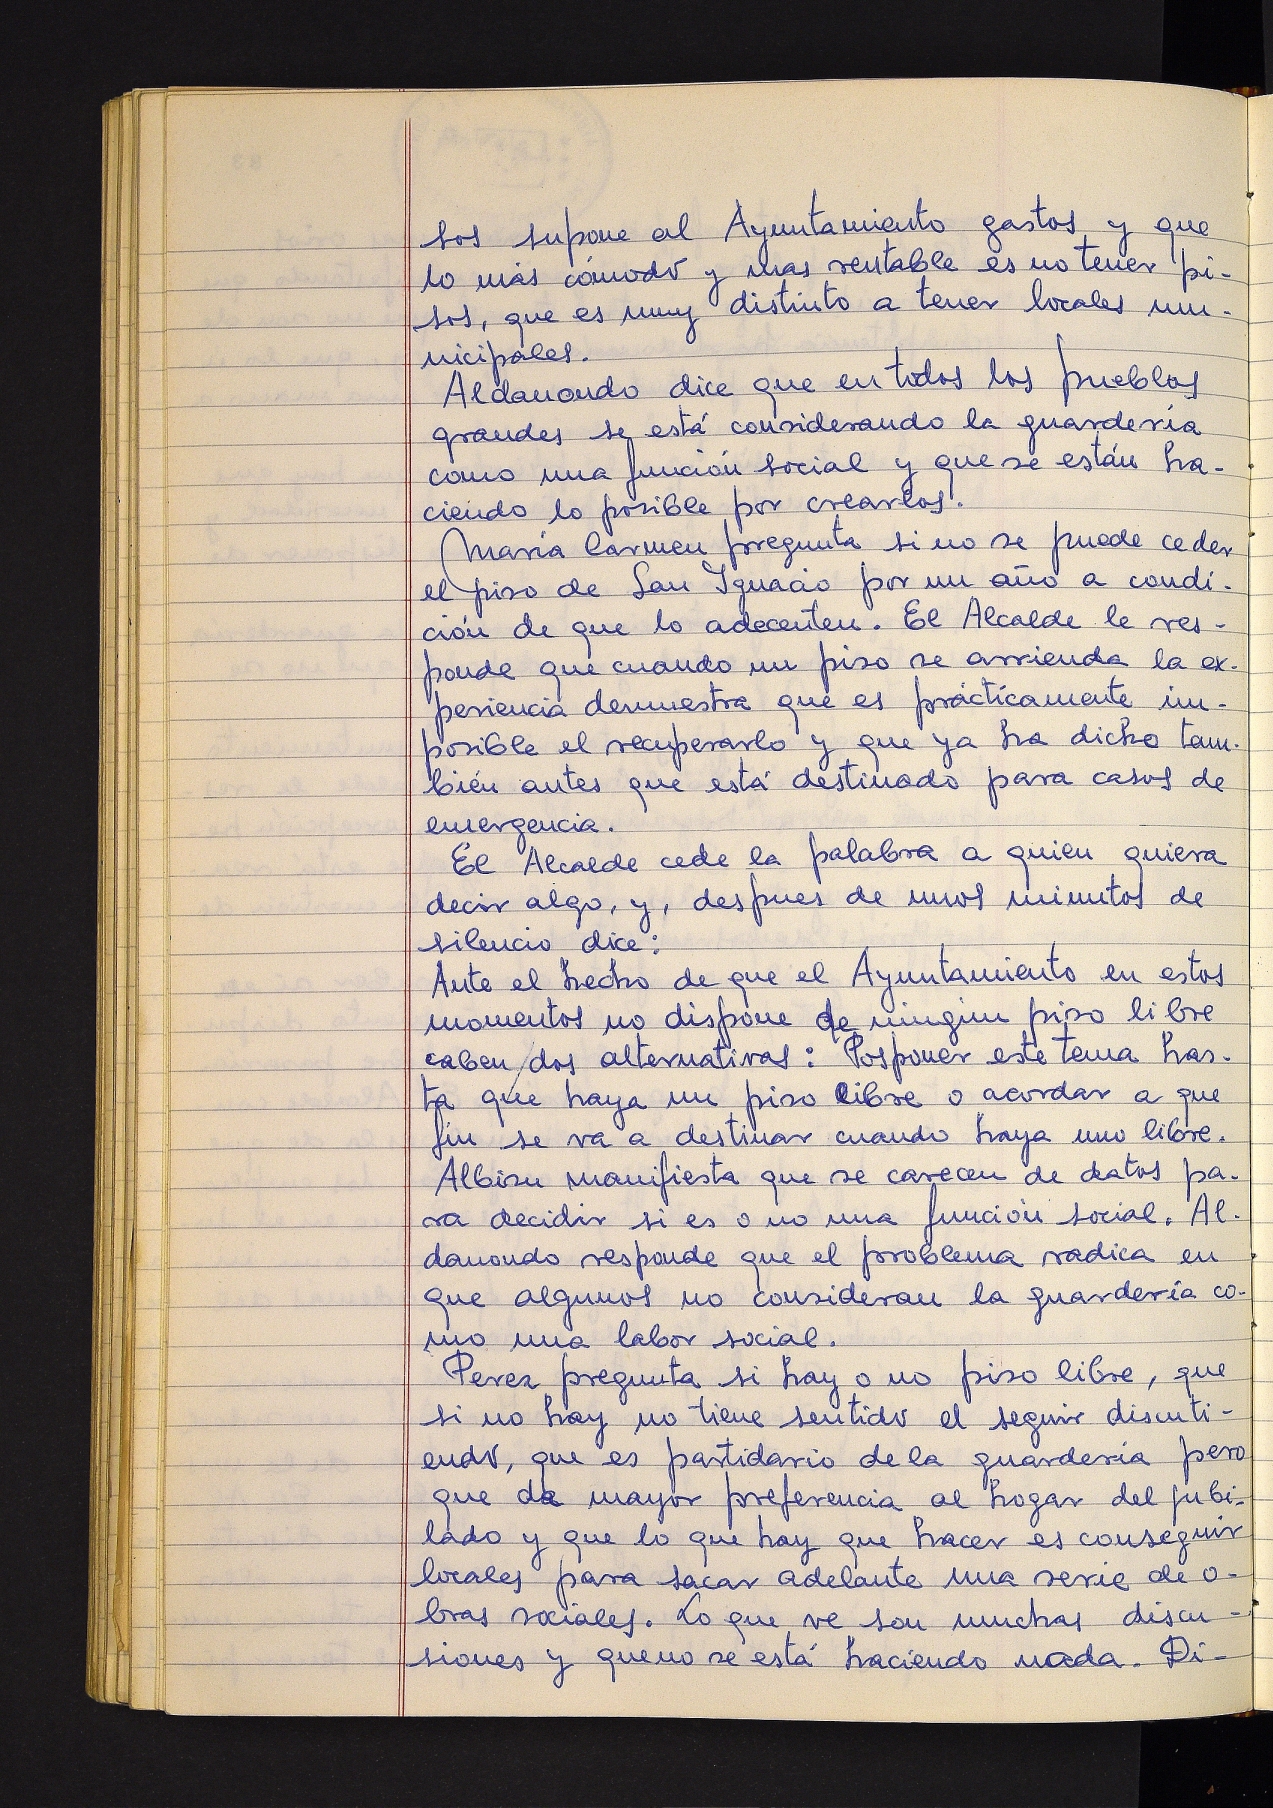 sos supone al Ayuntamiento gastos y que
lo más cómodo y mas rentable es no tener pi-
sos, que es muy distinto a tener locales mu-
nicipales.
Aldanondo dice que en todos los pueblos
grandes se está considerando la guardería
como una función social y que se están ha-
ciendo lo posible por crearlos.
María Carmen pregunta si no se puede ceder
el piso de San Ignacio por un año a condi-
ción de que lo adecenten. El Alcalde le res-
ponde que cuando un piso se arrienda la ex-
periencia demuestra que es prácticamente im-
posible el recuperarlo y que ya ha dicho tam-
bién antes que está destinado para casos de
emergencia.
El Alcalde cede la palabra a quien quiera
decir algo, y, despues de unos minutos de
silencio dice:
Ante el hecho de que el Ayuntamiento en estos
momentos no dispone de ningún piso libre
caben dos alternativas: Posponer este tema has-
ta que haya un piso libre o acordar a que
fin se va a destinar cuando haya uno libre.
Albisu manifiesta que se carecen de datos pa-
ra decidir si es o no una función social. Al-
danondo responde que el problema radica en
que algunos no consideran la guardería co-
mo una labor social.
Perez pregunta si hay o no piso libre, que
si no hay no tiene sentido el seguir discuti-
endo, que es partidario de la guardería pero
que da mayor preferencia al hogar del jubi-
lado y que lo que hay que hacer es conseguir
locales para sacar adelante una serie de o-
bras sociales. Lo que ve son muchas discu-
siones y que no se está haciendo nada. Di-